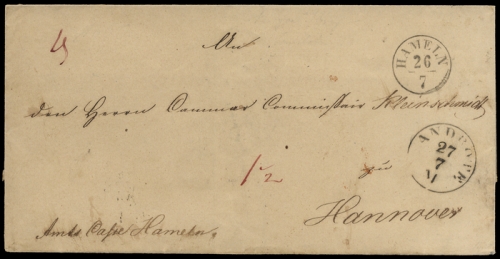 An
HAMELN
26
7
den Herrn Commissair Kleinschmidt
27
7
M
1 1/2
zu
Hannover
Amts Hameln.